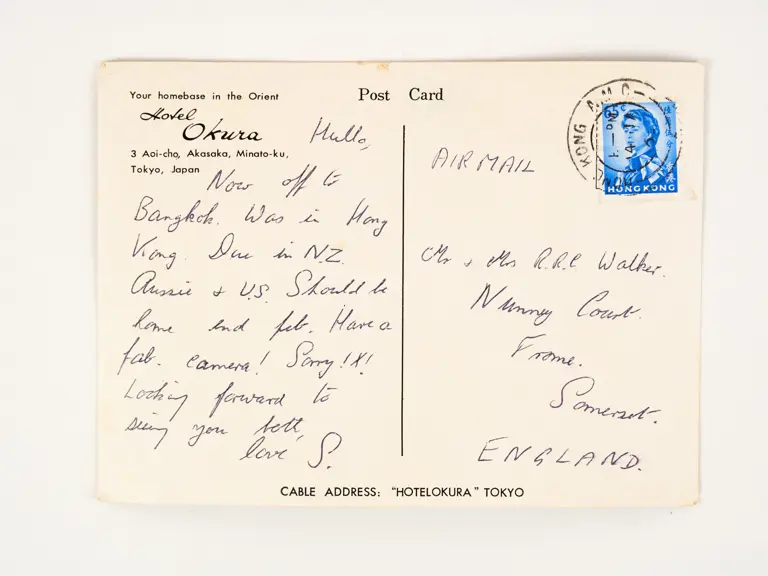 Your homebase in the Orient
Hotel
Okura
3 Aoi-cho, Akasaka, Minato-ku,
Tokyo, Japan
Post Card
Hullo,
Now off to
Bangkok. Was in Hong
Kong. Due in N.Z.
Aussie & U.S. Should be
home end feb. Have a
fab. camera! Sorry!X!
Looking forward to
seeing you both,
love S.
AIR MAIL
HONG KONG
65c
HONG KONG
Mr & Mrs R.R.C Walker.
Nunney Court.
Frome.
Somerset.
ENGLAND.
CABLE ADDRESS: "HOTELOKURA" TOKYO